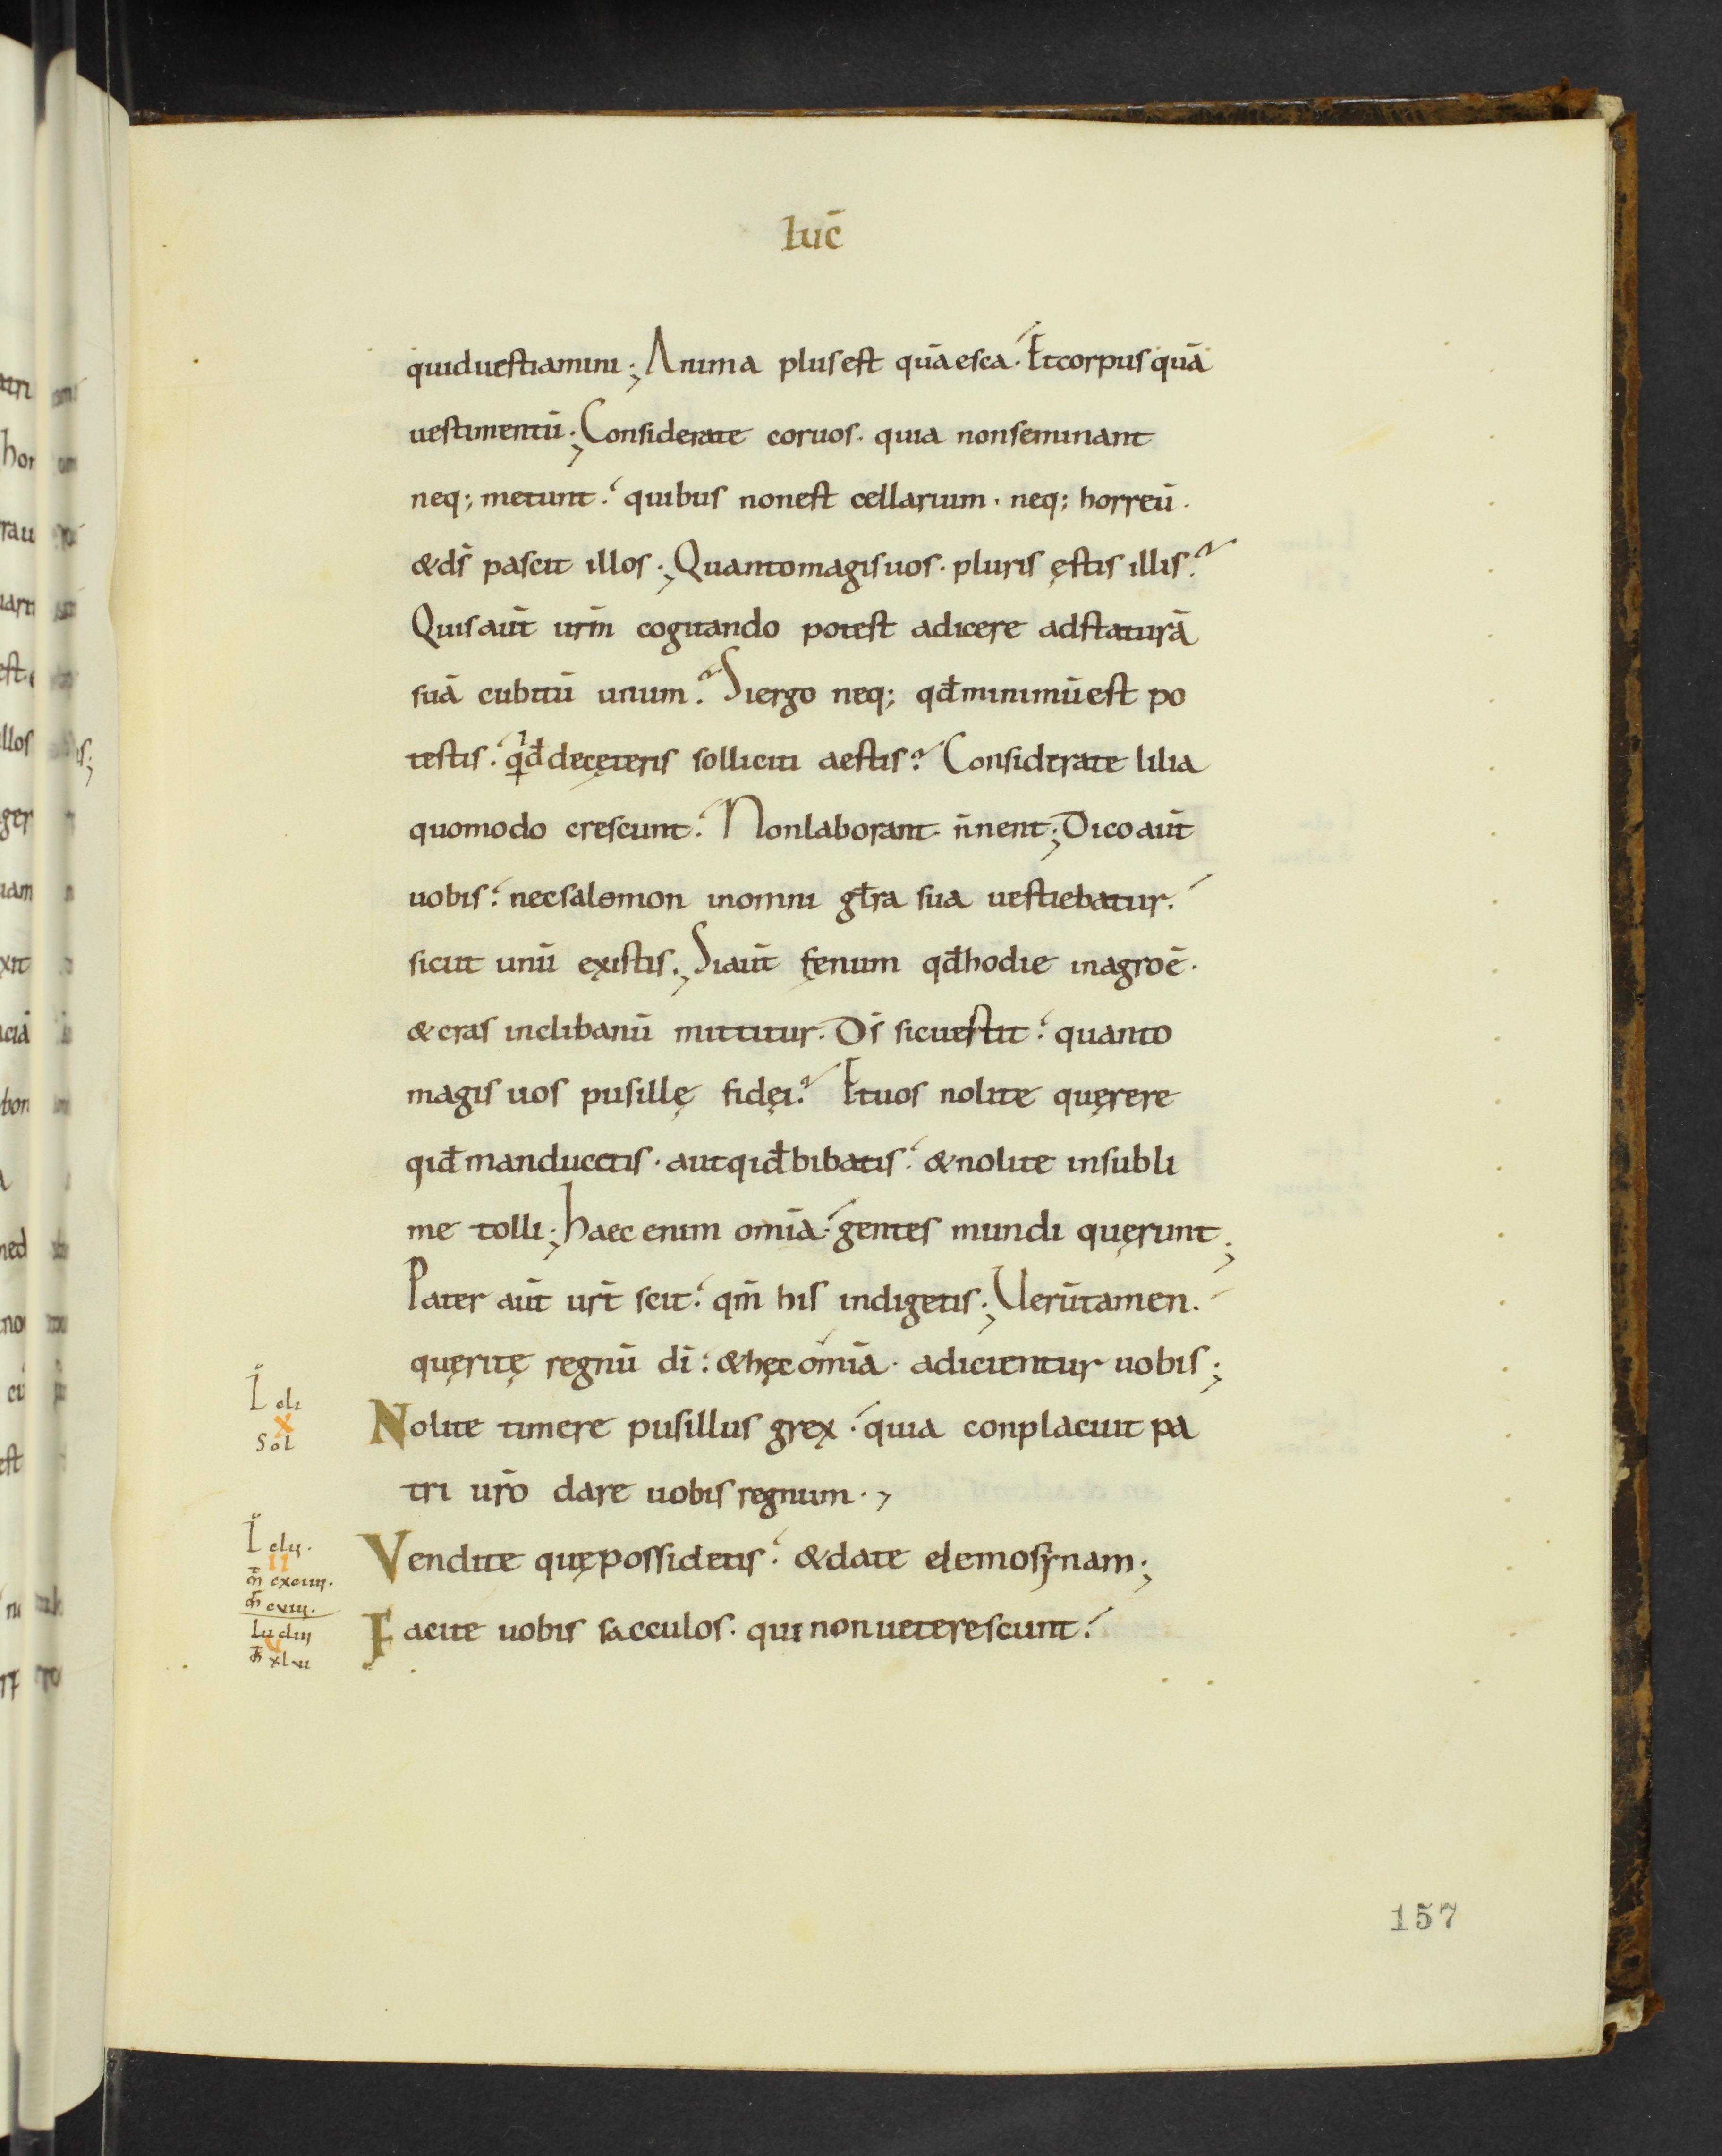 luc̄
quid uestiamini; Anima plus est quā esca. Et corpus quā
uestimentū; Considerate coruos. quia non seminant
neq; metunt. quibus non est cellarium. neq; horreū.
& ds̄ pascit illos; Quanto magis uos. pluris ęstis illis?
Quis aūt ur̄m cogitando potest adicere ad staturā
suā cubitū unum? Si ergo neq; qđ minimū est po
testis. qđ de cęteris solliciti aestis? Considerate lilia
quomodo crescunt. Non laborant. n̄ nent; Dico aūt
uobis. nec salomon in omni gƚra sua uestiebatur.
sicut unū ex istis; Si aūt fęnum qđ hodie in agro ē.
& cras in clibanū mittitur. Ds̄ sic uestit. quanto
magis uos pusillę fidęi? Et uos nolite quęrere
qiđ manducetis. aut qiđ bibatis. & nolite in subli
me tolli; haec enim omīa. gentes mundi quęrunt;
Pater aūt urt̄ scit. qm̄ his indigetis; Uerūtamen.
quęritę regnū dī. & hęc omīa. adicientur uobis;
Nolite timere pusillus grex. quia conplacuit pa
tri ur̄o dare uobis regnum.,
Vendite quę possidetis. & date elemosynam;
Facite uobis sacculos. qui non ueterescunt.
L cli
X
Sol
L clii.
II
m̄ cxciiii.
m̄ cviii.
Lu cliii
V
m̄ xlvii
157